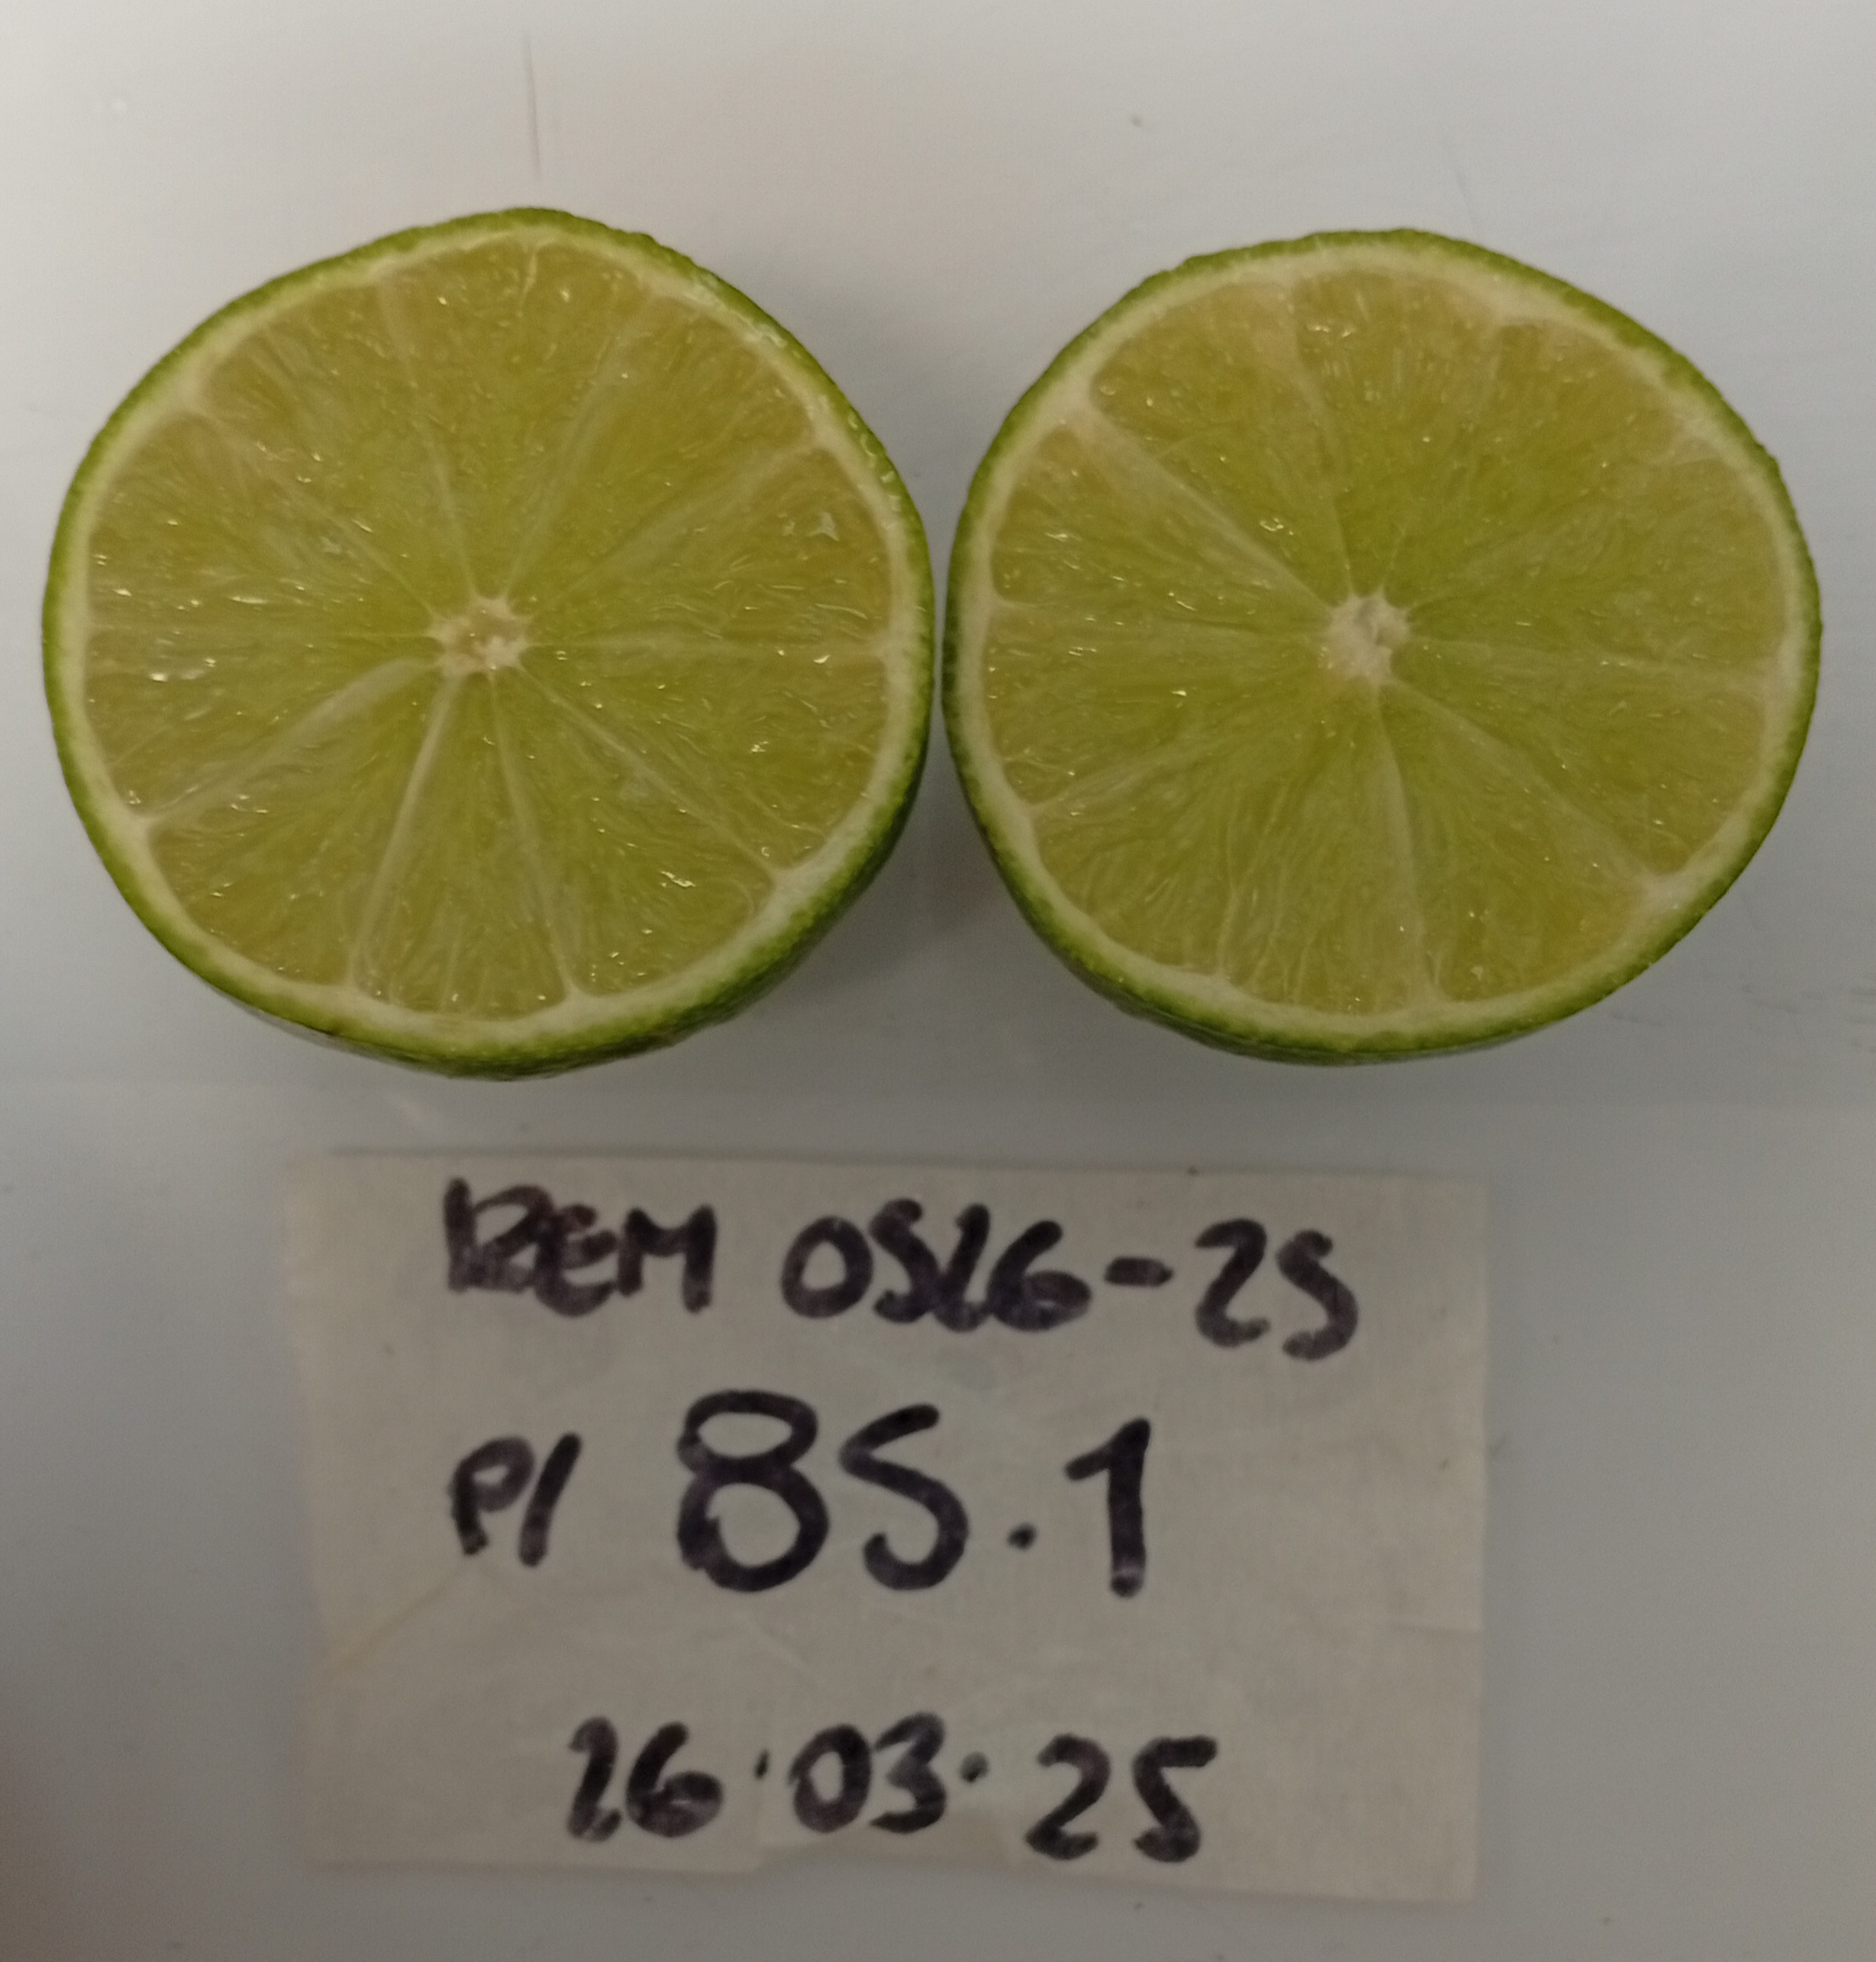 REM 0526-25
P/ 85.1
26.03.25